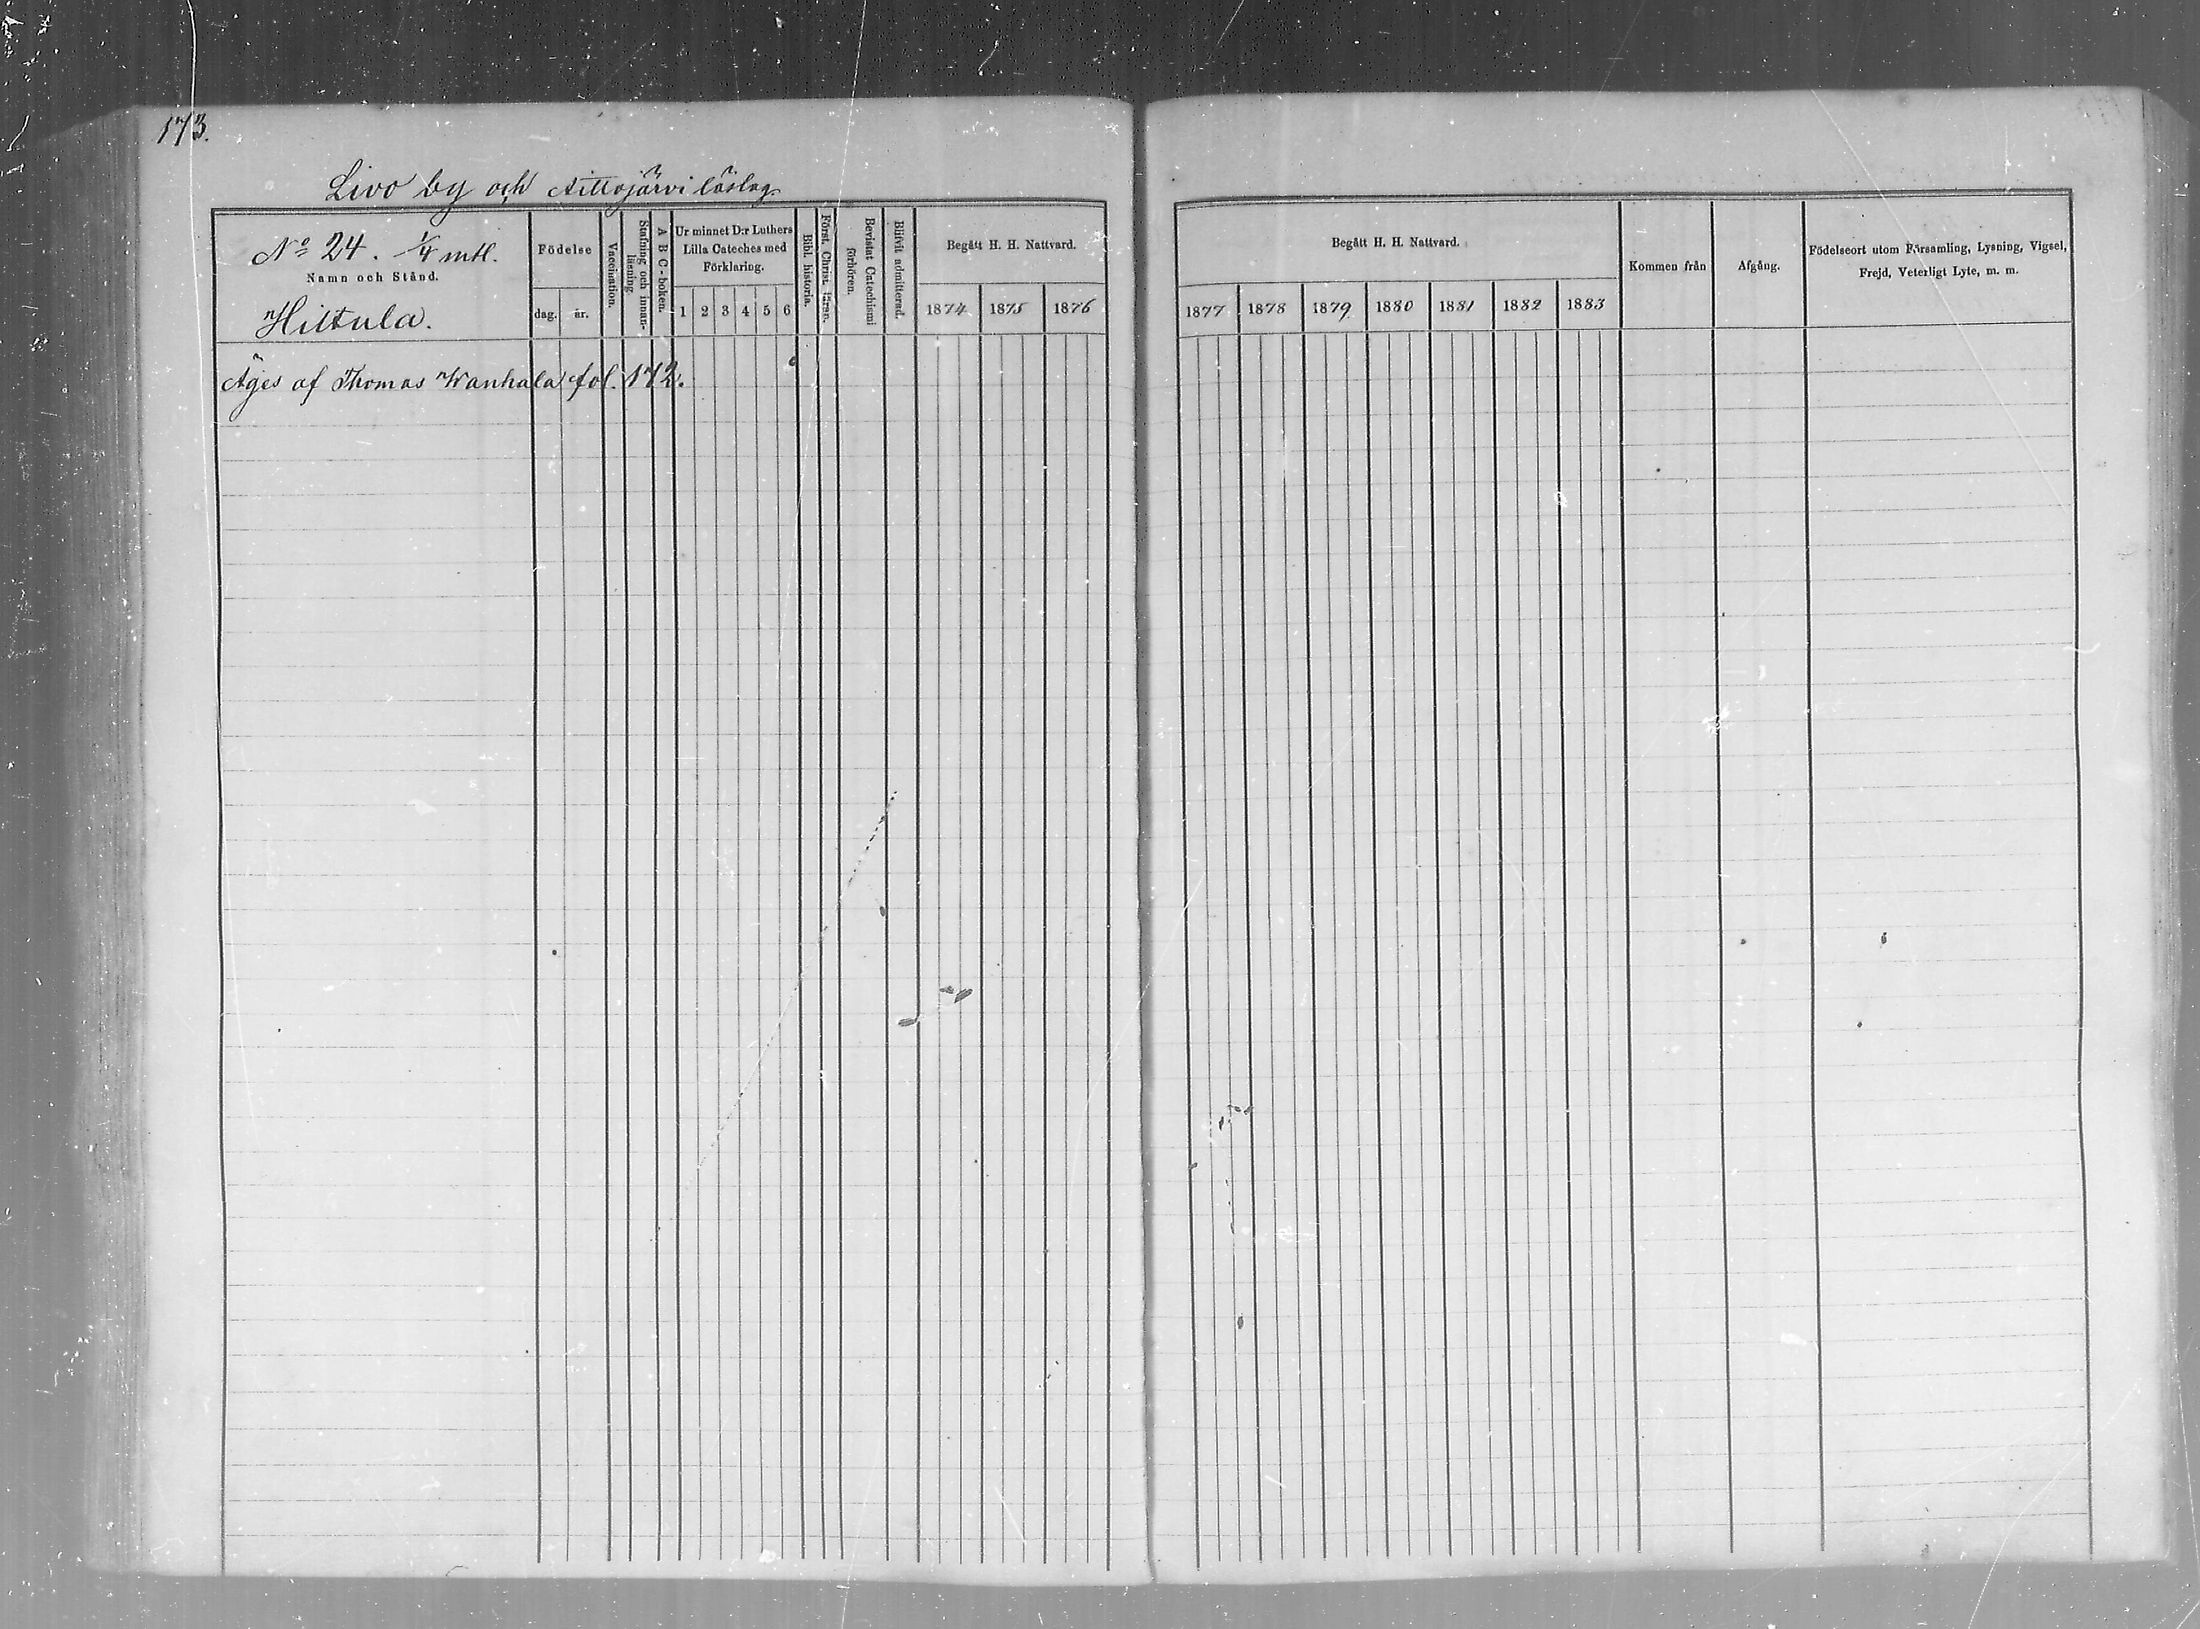 173.
Livo by och Aittojärvi läslag
No 24. 1/4 mtl.
Namn och Stånd.
Hiltula.
Födelse
dag.
år.
Vaccination.
Stafning och innanläsning.
A B C-boken.
Ur minnet D:r Luthers
Lilla Cateches med
Förklaring.
1 2 3 4 5 6
Bibl. historia.
Först. Christ. läran.
Bevistat Catechismi
förhören.
Blifvit admitterad.
Begått H. H. Nattvard.
1874 1875 1876
Begått H. H. Nattvard.
1877 1878 1879 1880 1881 1882 1883
Kommen från
Afgång.
Födelseort utom Församling, Lysning, Vigsel,
Frejd, Veterligt Lyte, m. m.
Äges af Thomas Wanhala fol. 172.